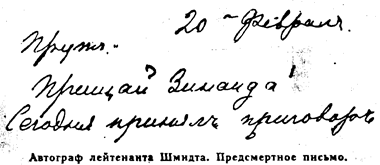 20 Февраля.
Прощай Зинаида!
Сегодня принялъ приговоръ
Автограф лейтенанта Шмидта. Предсмертное письмо.